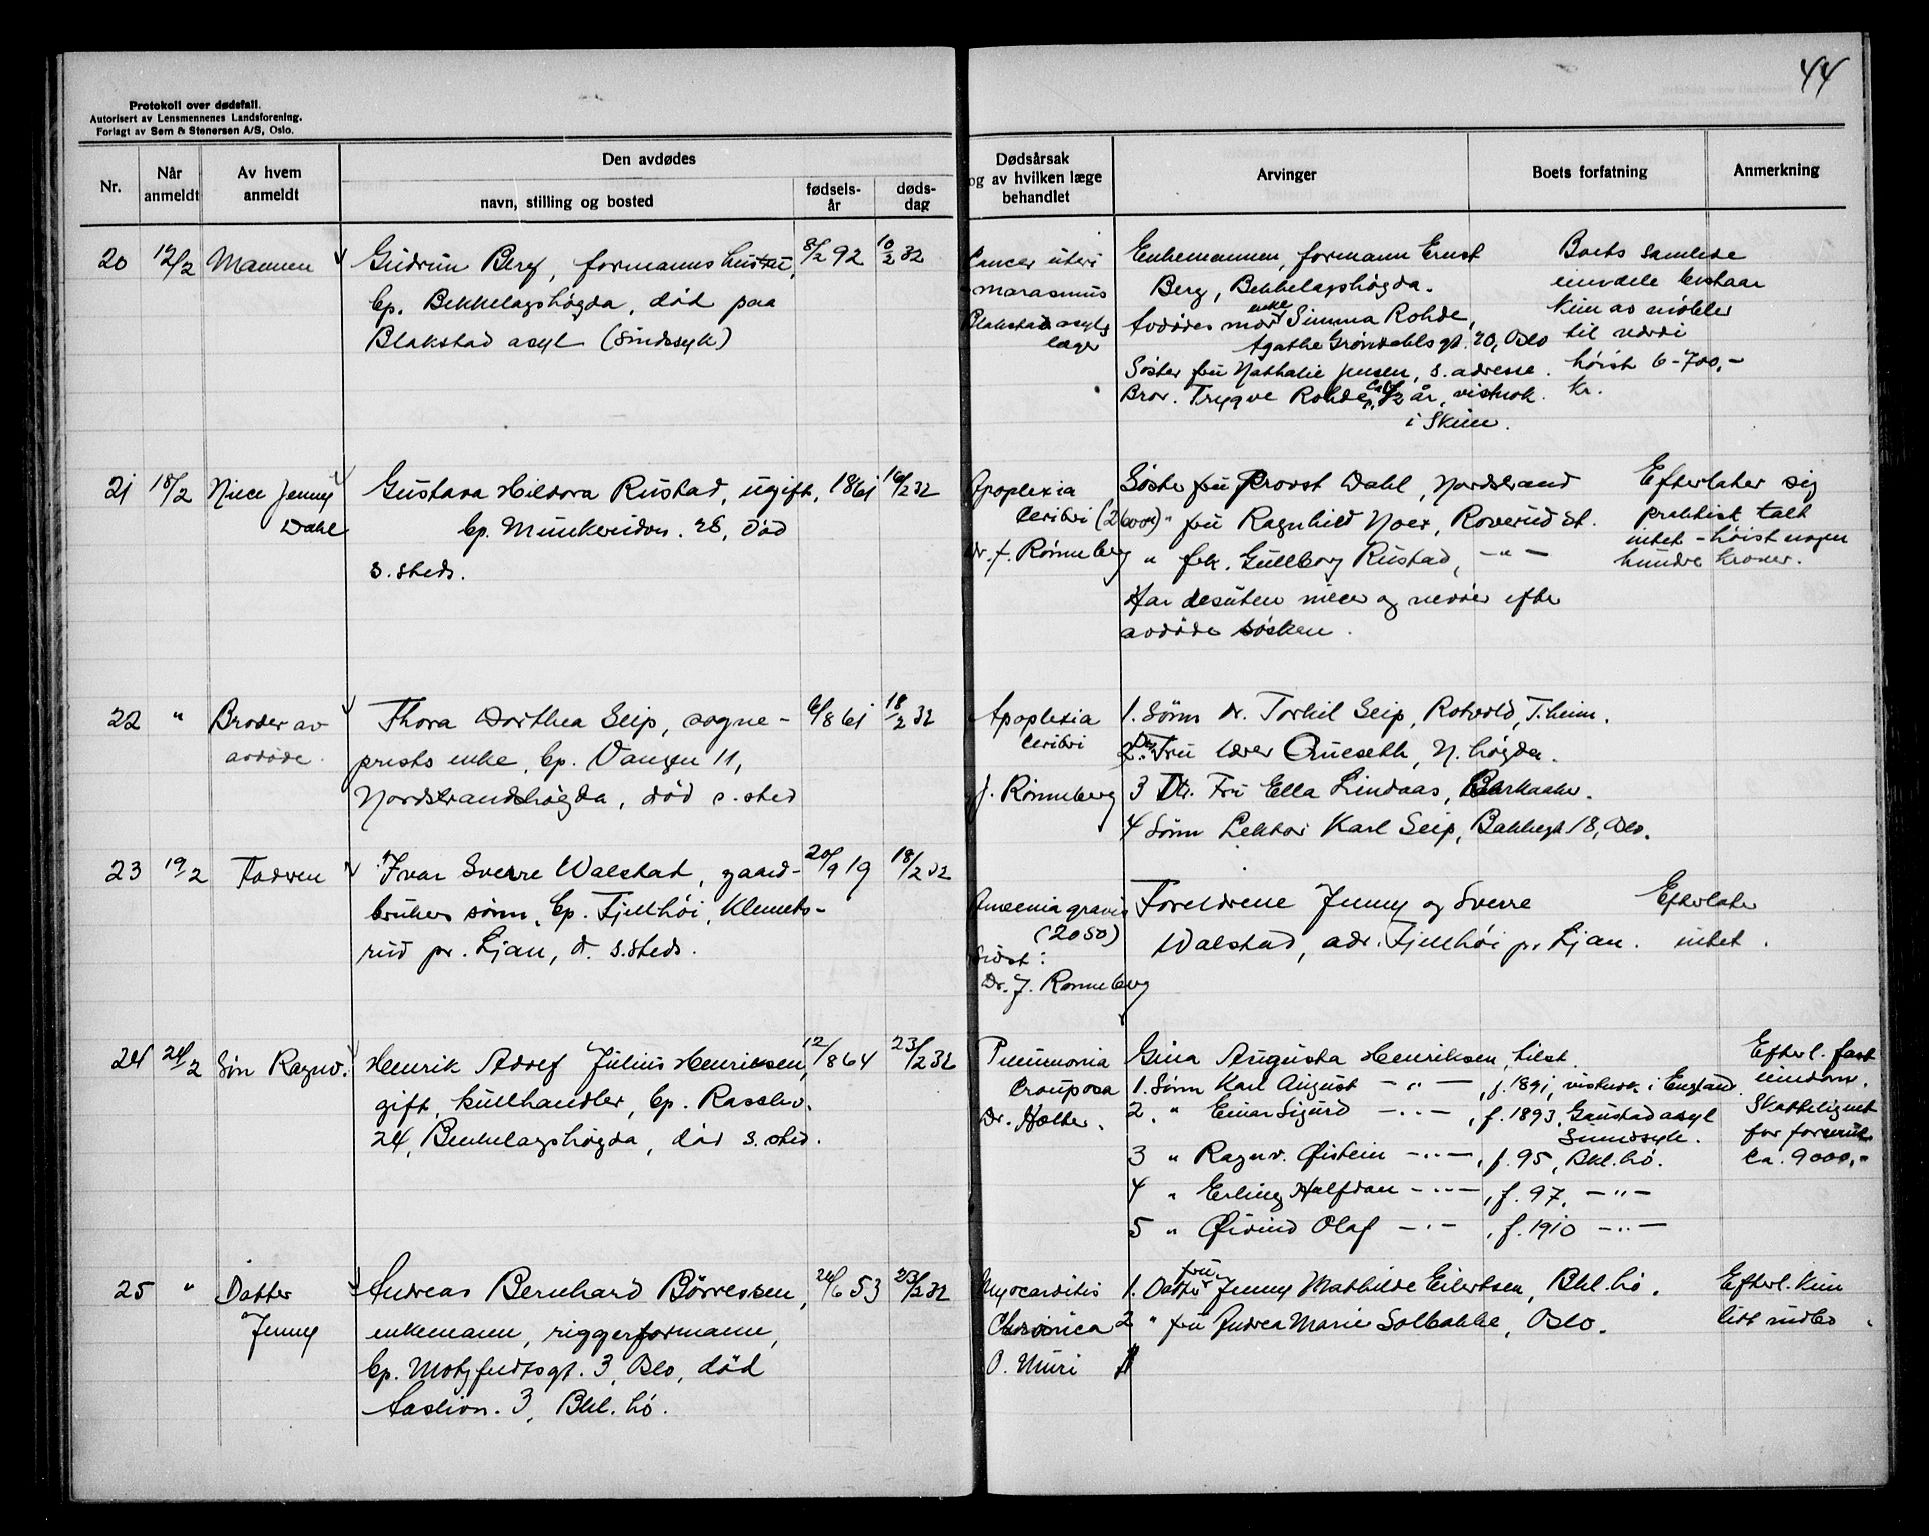 44
Protokoll over dødsfall.
Autorisert av Lensmennenes Landsforening.
Forlagt av Sem & Stenersen A/S, Oslo.
Nr.
Når anmeldt
Av hvem anmeldt
Den avdødes
navn, stilling og bosted
fødsels-år
døds-dag
Dødsårsak og av hvilken læge behandlet
Arvinger
Boets forfatning
Anmerkning
20 12/2 Mannen
Gudrun Berg, formanns hustru, 8/2 92 10/2 32
bp. Bekkelagshögda, död paa
Blakstad asyl (Sindssyk)
Cancer uteri
marasmus
Blakstad asyls
læger
Enkemannen, formann Ernst
Berg, Bekkelagshögda.
Avdödes mor enke Simma Rohde,
Agathe Gröndahlsgt. 20, Oslo
Söster fru Nathalie Jensen, s. adresse.
Bror. Trygve Rohde, år, vistnok
i Skien.
Boets samlede
eiendele bestaar
kun av möbler
til værdi
höist 6-700,-
kr.
21 18/2 Niece Jenny
Dahl
Gustava Hildora Rustad, ugift, 1861 16/2 32
bp. Munkerudvn. 28, död
s. steds.
Apoplexia
Ceribri (2600)
Dr. J. Rönneberg
Söster fru Provst Dahl, Nordstrand
" fru Ragnhild Noer, Roverud st.
" frk. Gullborg Rustad, -"-
Har desuten niecer og nevöer efter
avdöde sösken.
Efterlater sig
praktisk talt
intet - höist nogen
hundre kroner.
22 " Broder av
avdöde.
Thora Dorthea Seip, sogne- 6/8 61 18/2 32
prests enke, bp. Vangen 11,
Nordstrandshögda, död s. sted
Apoplexia
Ceribri
J. Rönneberg
1. Sönn dr. Torkil Seip, Rotvold, T.heim.
2. Dtr. Fru lærer Queseth, N. högda.
3 Dtr. Fru Ella Lindaas, Barkaaker.
4 Sönn Lektor Karl Seip, Bakkegt 18, Oslo.
23 19/2 Faderen
Ivar Sverre Walstad, gaard- 20/9 19 18/2 32
brukers sönn, bp. Fjellhöi, Klemets-
rud pr. Ljan, d. s. steds.
Anæmia gravis
(2050)
Sidst:
Dr. J. Rönneberg
Foreldrene Jenny og Sverre
Walstad, adr. Fjellhöi pr. Ljan.
Efterlater
intet.
24 24/2 Sön Ragnv.
Henrik Adolf Julius Henriksen, 12/8 64 23/2 32
gift, kullhandler, bp. Rasslv.
24, Bekkelagshögda, död s. sted.
Pneumonia
Crouposa
Dr. Holter.
Gina Augusta Henriksen, tilst.
1. Sönn Karl August -"-, f. 1891, vistnok i England.
2. " Einar Sigurd -"-, f. 1893, Gaustad asyl
Sinnssyk.
3 " Ragnv. Öistein -"-, f. 95, Bkl.hö.
4 " Erling Halfdan -"-, f. 97, -"-
5 " Öivind Olaf -"-, f. 1910 -"-
Efterl. fast
eiendom.
Skattelignet
for formue
ca. 9000,-
25 " Datter
Jenny
Andreas Bernhard Börressen, 24/6 53 23/2 32
enkemann, riggerformann,
bp. Motzfeldtsgt. 3, Oslo, död
Aaslivn. 3, Bkl. hö.
Myocarditis
Chronica
O. Muri
1. Datter fru Jenny Mathilde Eilertsen, Bkl. hö.
2 " fru Andrea Marie Solbakke, Oslo.
Efterl. kun
litt indbo.